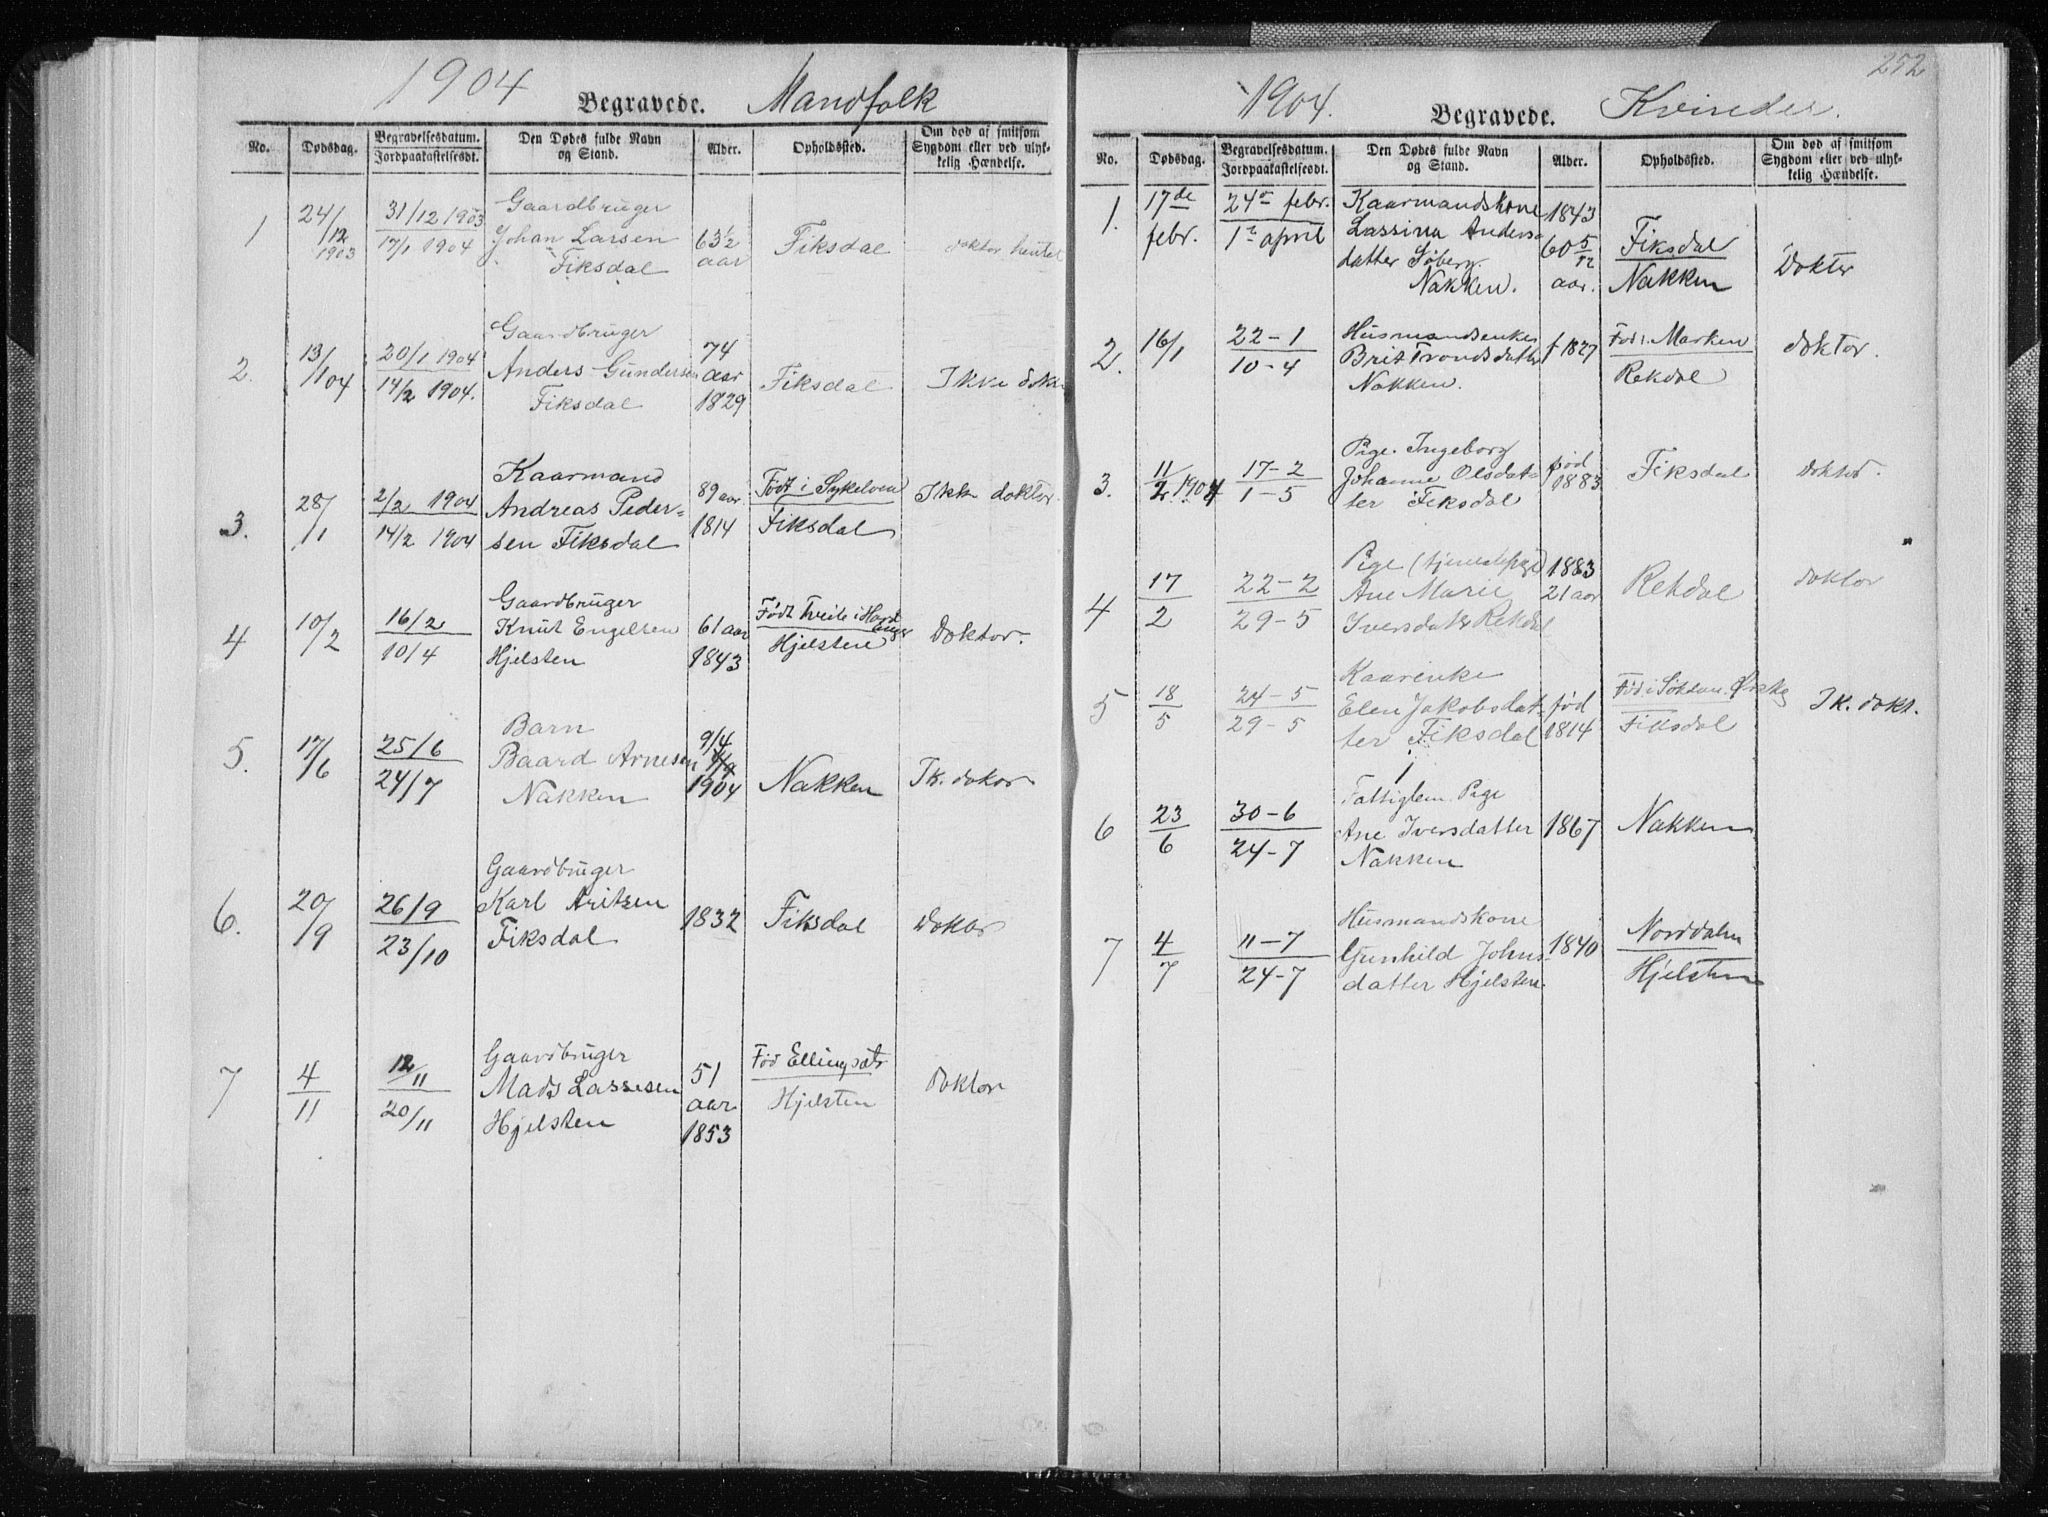 1904
Begravede. Mandfolk
No. Dødsdag. Begravelsesdatum. Jordpaakastelsesdt. Den Dødes fulde Navn og Stand. Alder. Opholdssted. Om død af smitsom Sygdom eller ved ulykkelig Hændelse.
1 24/12 1903 31/12 1903 17/1 1904 Gaardbruger Johan Larsen Fiksdal 63½ aar Fiksdal doktor hentet
2. 13/1 04 20/1 1904 14/2 1904. Gaardbruger Anders Gundersen Fiksdal 74 aar 1829 Fiksdal Ikke dok
3. 28/1 2/2 1904 14/2 1904 Kaarmand Andreas Peder= sen Fiksdal 89 aar 1814 Født i Sykelven Fiksdal Ikk doktor.
4 10/2 16/2 10/4 Gaardbruger Knut Engelsen Hjelsten 61 aar 1843 Født Tveite i Hard anger Hjelsten Doktor.
5. 17/6 25/6 24/7 Barn Baard Arnesen Nakken 9/4 1904 Nakken Ik. dokor
6. 20/9 26/9 23/10 Gaardbruger Karl Aritsen Fiksdal 1832 Fiksdal Doktor
7 4/11 12/11 20/11 Gaardbruger Mads Lassesen Hjelsten 51 aar 1853 Fød Ellingsætr Hjelsten doktor
272
1904.
Begravede. Kvinder.
No. Dødsdag. Begravelsesdatum. Jordpaakastelsesdt. Den Dødes fulde Navn og Stand. Alder. Opholdssted. Om død af smitsom Sygdom eller ved ulykkelig Hændelse.
1. 17de febr. 24de febr. 1ste april Kaarmandskone Lassina Anders= datter Søberg Nakken. 1843 60 5/12 aar. Fiksdal Nakken Dokter
2. 16/1 22-1 10-4 Husmandsenke Brit Trondsdatter Nakken. f 1827 Fød i Marken Rekdal doktor.
3. 11/2 1904 17-2 1-5 Pige. Ingeborg Johanne Olsdat= ter Fiksdal fød 1883. Fiksdal doktor.
4 17/2 22-2 29-5 Pige (tjenestepige) Ane Marie Iversdatter Rekdal 1883 21 aar Rekdal doktor
5 18/5 24-5 29-5 Kaarenke Elen Jakobsdat= ter Fiksdal fød 1814 Fiksdal Ik. dokt.
6 23/6 30-6 24-7 Fattiglem Pige Ane Iversdatter Nakken 1867 Nakken
7 4/7 11-7 24-7 Husmandskone Gunhild Johns datter Hjelsten. 1840 Norddalen Hjelsten